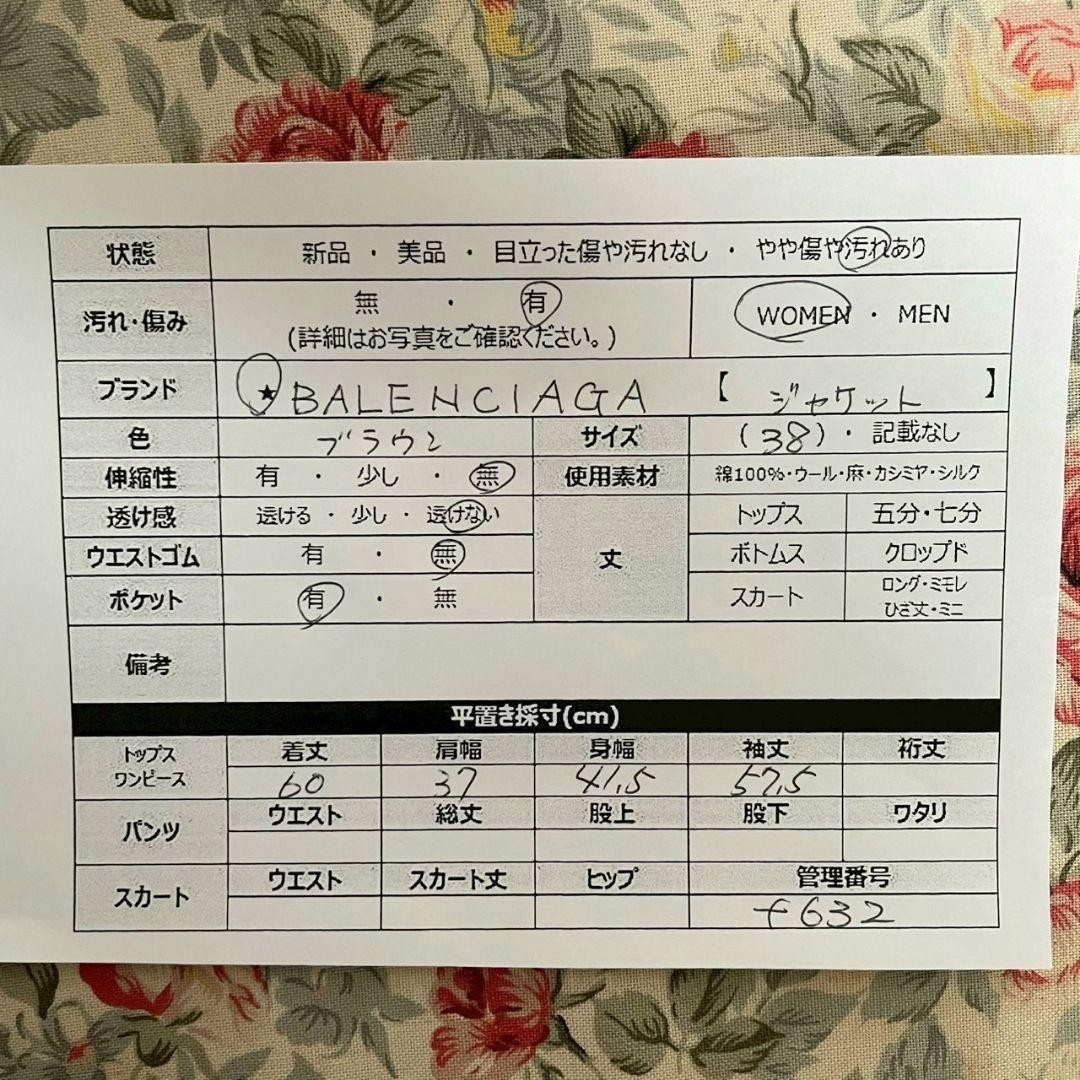 状態 新品 ・ 美品 ・ 目立った傷や汚れなし ・ やや傷や汚れあり
汚れ・傷み 無 ・ 有 WOMEN ・ MEN
(詳細はお写真をご確認ください。)
ブランド ★BALENCIAGA 【 ジャケット 】
色 ブラウン サイズ (38)・ 記載なし
伸縮性 有 ・ 少し ・ 無 使用素材 綿100%・ウール・麻・カシミヤ・シルク
透け感 透ける ・ 少し ・ 透けない 丈 トップス 五分・七分
ウエストゴム 有 ・ 無 ボトムス クロップド
ポケット 有 ・ 無 スカート ロング・ミモレ
ひざ丈・ミニ
備考
平置き採寸(cm)
トップス
ワンピース
着丈 肩幅 身幅 袖丈 裄丈
60 37 41.5 57.5
パンツ ウエスト 総丈 股上 股下 ワタリ
スカート ウエスト スカート丈 ヒップ 管理番号
f632